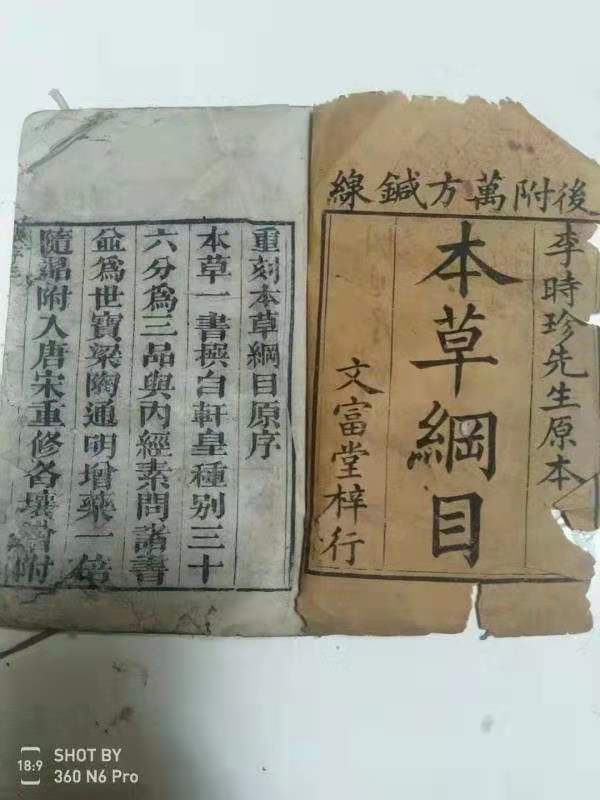 後附萬方鍼線
李時珍先生原本
本草綱目
文富堂梓行
重刻本草綱目原序
本草一書撰自軒皇種別三十
六分爲三品與內經素問諸書
並爲世寶梁陶通明增藥一倍
隨品附入唐宋重修各附
SHOT BY
18:9
360 N6 Pro